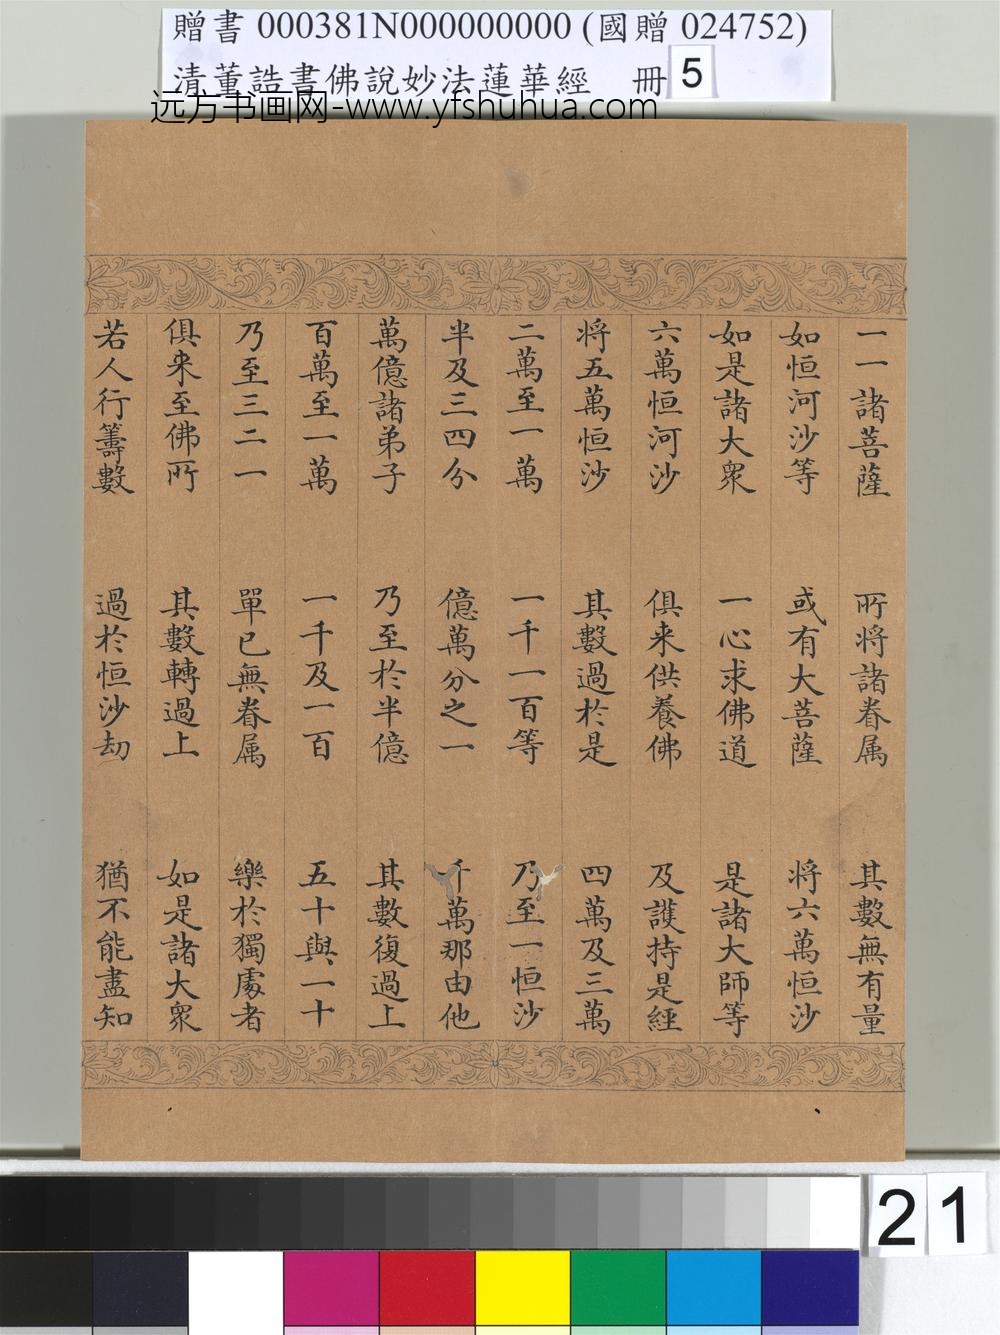 贈書 000381N000000000 (國贈 024752)
清董誥書佛說妙法蓮華經 冊 5
远方书画网-www.yfshuhua.com
一一諸菩薩 所將諸眷属 其數無有量
如恒河沙等 或有大菩薩 將六萬恒沙
如是諸大眾 一心求佛道 是諸大師等
六萬恒河沙 俱来供養佛 及護持是經
將五萬恒沙 其數過於是 四萬及三萬
二萬至一萬 一千一百等 乃至一恒沙
半及三四分 億萬分之一 千萬那由他
萬億諸弟子 乃至於半億 其數復過上
百萬至一萬 一千及一百 五十與一十
乃至三二一 單已無眷属 樂於獨處者
俱来至佛所 其數轉過上 如是諸大眾
若人行籌數 過於恒沙劫 猶不能盡知
21